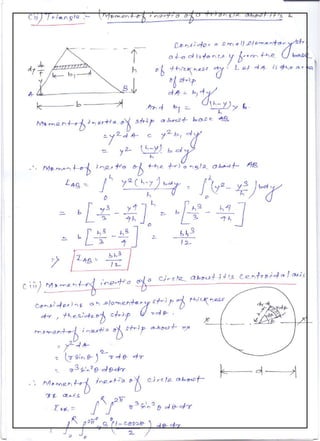 (ii) Triangle :- (Moment of inertia of a triangle about its b
Consider a small elementary str
at a distance y from the base
of thickness dy. Let dA is the area
of strip
dA = b₁ dy
And b₁ = (h-y)/h × b
h
b₁
dy
y
A
B
b
Moment of inertia of strip about base AB
= y² dA = y² b₁ dy
= y² (h-y)/h b dy
∴ Moment of inertia of the triangle about AB
I_AB = ∫₀^h y² (h-y)/h b dy = ∫₀^h (y² - y³/h) b dy
= b [y³/3 - y⁴/4h]₀^h = b [h³/3 - h⁴/4h]
= b [h³/3 - h³/4] = bh³/12
⇒ I_AB = bh³/12
(iii) Moment of inertia of a circle about its centroidal axis
Considering an elementary strip of thickness
dr, the side of strip rdθ.
moment of inertia of strip about xx
= y² dA
= (r sinθ)² r dθ dr
= r³ sin²θ dθ dr
∴ Moment of inertia of circle about
xx axis
I_xx = ∫₀^R ∫₀^2π r³ sin²θ dθ dr
= ∫₀^R ∫₀^2π r³ (1-cos2θ)/2 dθ dr
x
x
d